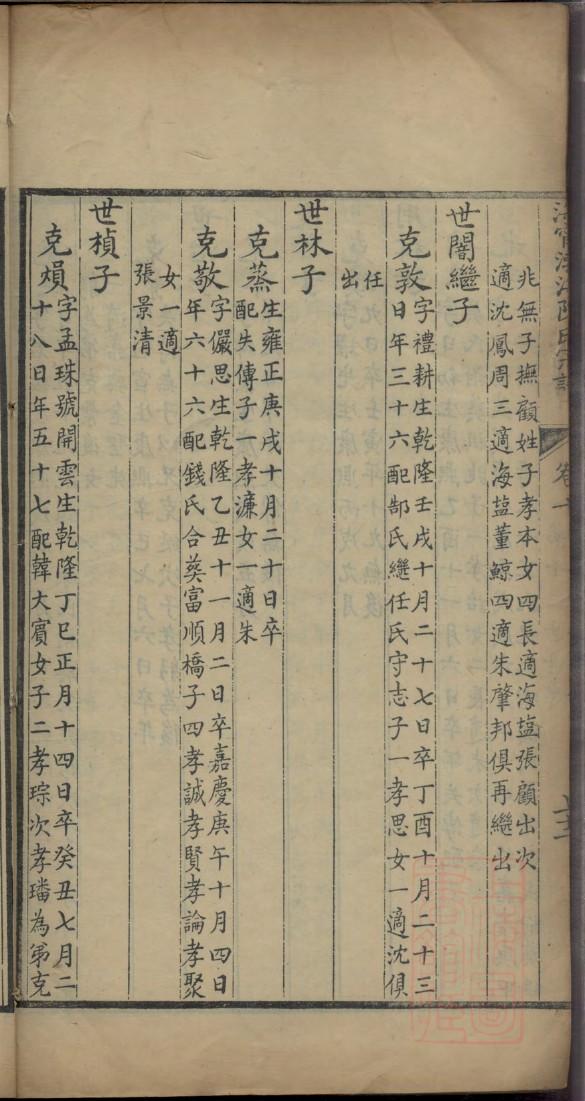 兆無子撫顧姓子孝本女四長適海盐張顧出次
適沈鳳周三適海盐董鯨四適朱肇邦俱再繼出
世闇繼子
克敦
字禮耕生乾隆壬戌十月二十七日卒丁酉十月二十三
日年三十六配郜氏繼任氏守志子一孝思女一適沈俱
任
出
世林子
克蒸
生雍正庚戌十月二十日卒
配失傳子一孝濂女一適朱
克敬
字儼思生乾隆乙丑十一月二日卒嘉慶庚午十月四日
年六十六配錢氏合葬富順橋子四孝誠孝賢孝論孝聚
女一適
張景清
世楨子
克熉
字孟珠號開雲生乾隆丁巳正月十四日卒癸丑七月二
十八日年五十七配韓大賓女子二孝琮次孝璠為弟克